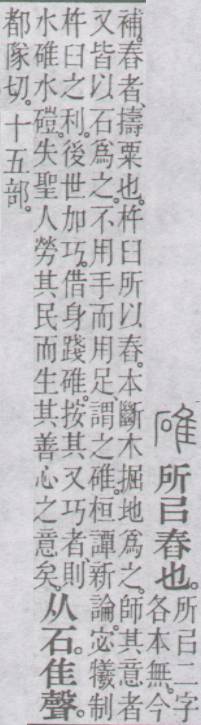 碓 所㠯舂也。
所㠯二字
各本無。今
補。舂者、擣粟也。杵臼所以舂。本斷木掘地爲之。師其意者
又皆以石爲之。不用手而用足。謂之碓。桓譚新論。宓犧制
杵臼之利。後世加巧。借身踐碓。按其又巧者、則
水碓水磑。失聖人勞其民而生其善心之意矣。
从石。隹聲。
都隊切。十五部。